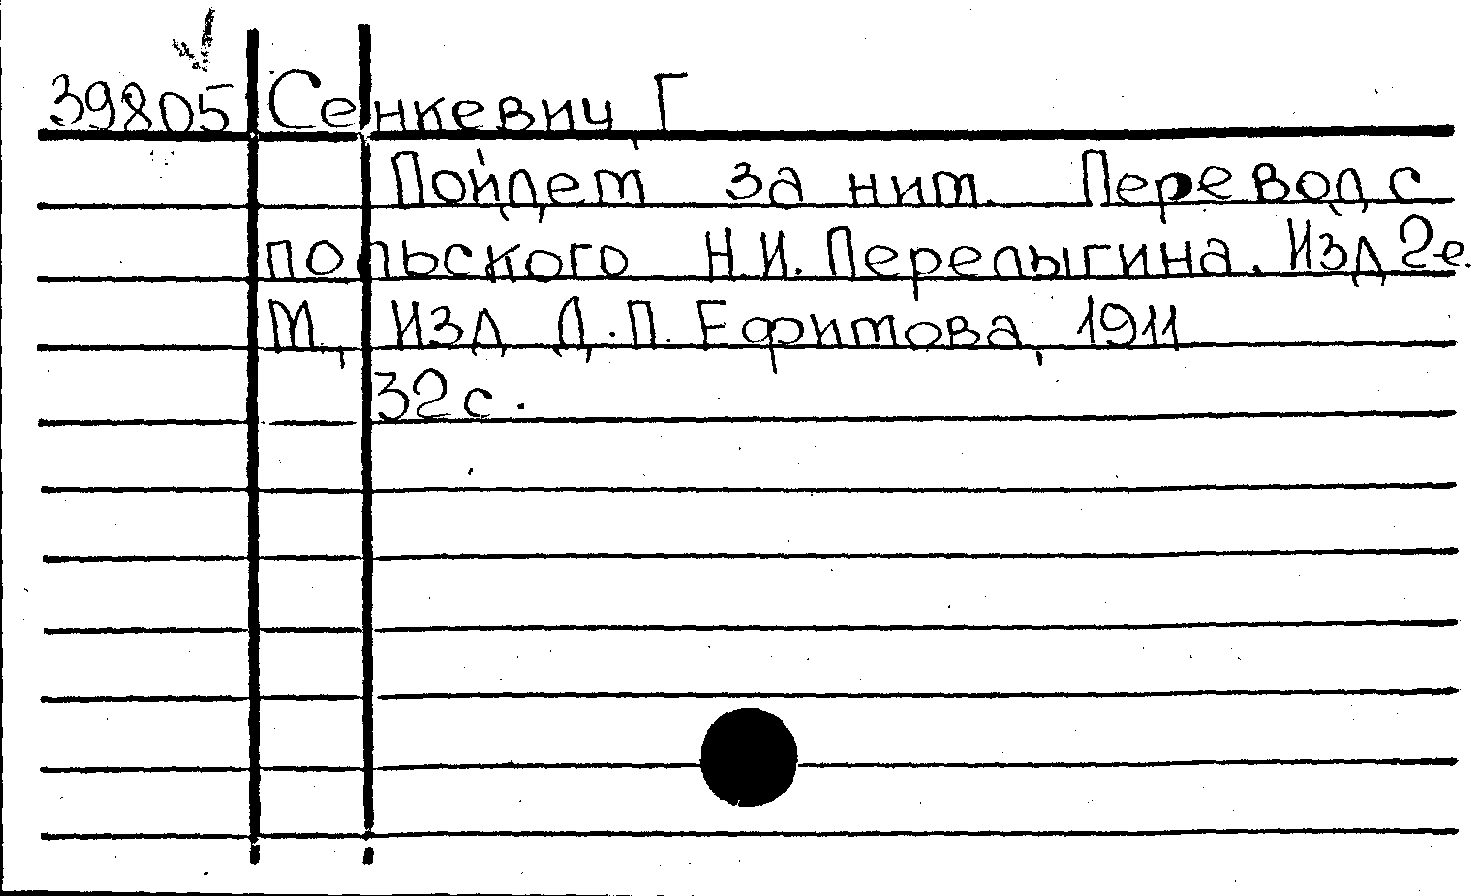 39805 Сенкевич Г
Пойдем за ним. Перевод с
польского Н.И. Перелыгина. Изд 2е.
М., Изд Д.П. Ефимова, 1911
32 с.